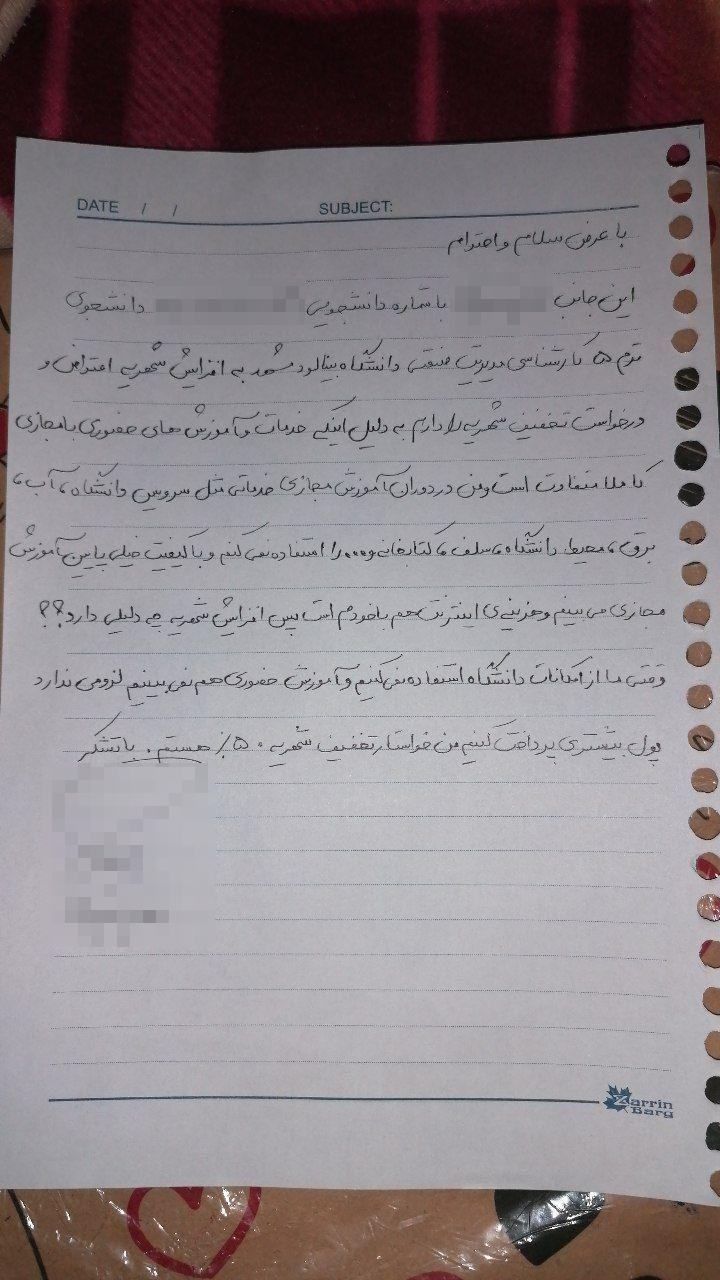 DATE / / SUBJECT:
با عرض سلام و احترام
این جانب با شماره دانشجویی دانشجوی
ترم ۵ کارشناسی مدیریت صنعتی دانشگاه بینالود مشهد به افزایش شهریه اعتراض و
درخواست تخفیف شهریه را دارم به دلیل اینکه خدمات و آموزش های حضوری با مجازی
کاملا متفاوت است و من در دوران آموزش مجازی خدماتی مثل سرویس دانشگاه، آب،
برق، محیط دانشگاه، سلف، کتابخانه و... را استفاده نمی کنم و با کیفیت خیلی پایین آموزش
مجازی می بینم و هزینه ی اینترنت هم با خودم است پس افزایش شهریه چه دلیلی دارد؟؟
وقتی ما از امکانات دانشگاه استفاده نمی کنیم و آموزش حضوری هم نمی بینیم لزومی ندارد
پول بیشتری پرداخت کنیم من خواستار تخفیف شهریه ۵۰٪ هستم. باتشکر
Zarrin
Barg